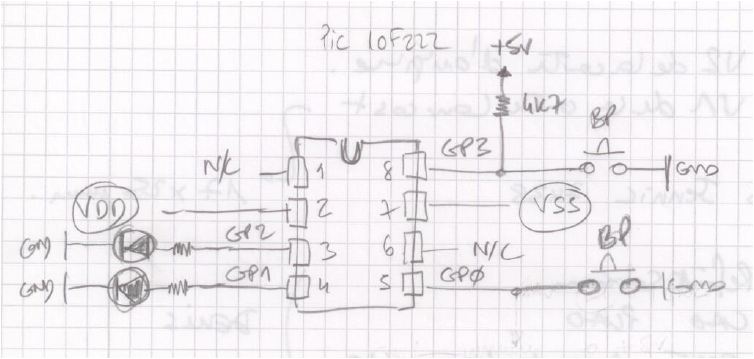 Pic 10F222
+5V
4K7
BP
N/C 1 8 GP3 GND
VDD 2 7 VSS
GND GP2 3 6 N/C
BP
GND GP1 4 5 GPØ GND